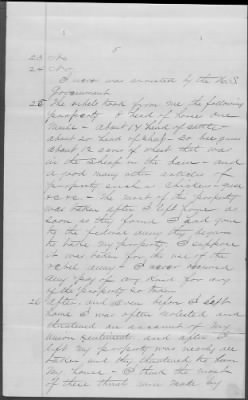 5
23 No
24 No
I never was arrested by the U.S.
Government
25 The rebels took from me the following
property 8 head of horses one
mule - about 14 head of cattle
about 20 head of sheep - 20 hogs
about 12 acres of wheat that was
in the sheaf in the barn - and
a good many other articles of
property such as chickens - geese
&c &c - the most of the property
was taken after I left home as
soon as they found I had gone
to the federal army they began
to take my property, I suppose
it was taken for the use of the
rebel army - I never received
any pay of any kind for any
of the property so taken
26 After and even before I left
home I was often molested and
threatened on account of my
union sentiments and after I
left my property was nearly all
taken and they threatened to burn
my house - I think the most
of these threats were made by